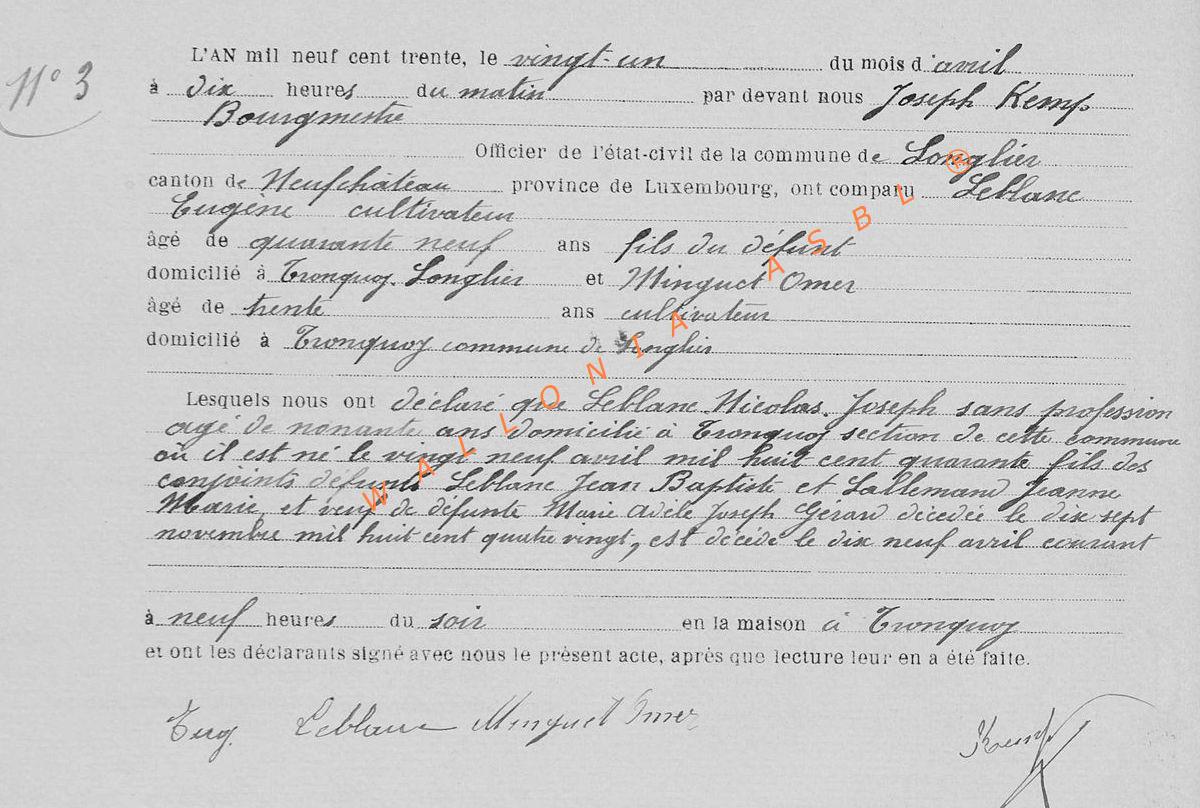 N° 3
L'AN mil neuf cent trente, le vingt-un du mois d'avril
à dix heures du matin par devant nous Joseph Kemp
Bourgmestre
Officier de l'état-civil de la commune de Longlier
canton de Neufchâteau province de Luxembourg, ont comparu Leblanc
Eugène cultivateur
âgé de quarante neuf ans fils du défunt
domicilié à Tronquoy Longlier et Minguet Omer
âgé de trente ans cultivateur
domicilié à Tronquoy commune de Longlier
Lesquels nous ont déclaré que Leblanc Nicolas Joseph sans profession
agé de nonante ans domicilié à Tronquoy section de cette commune
où il est né le vingt neuf avril mil huit cent quarante fils des
conjoints défunts Leblanc Jean Baptiste et Lallemand Jeanne
Marie, et veuf de défunte Marie Adèle Joseph Gérard décédée le dix sept
novembre mil huit cent quatre vingt, est décédé le dix neuf avril courant
à neuf heures du soir en la maison à Tronquoy
et ont les déclarants signé avec nous le présent acte, après que lecture leur en a été faite.
Eug. Leblanc Minguet Omer Kemp
WALLONIA ASBL ®